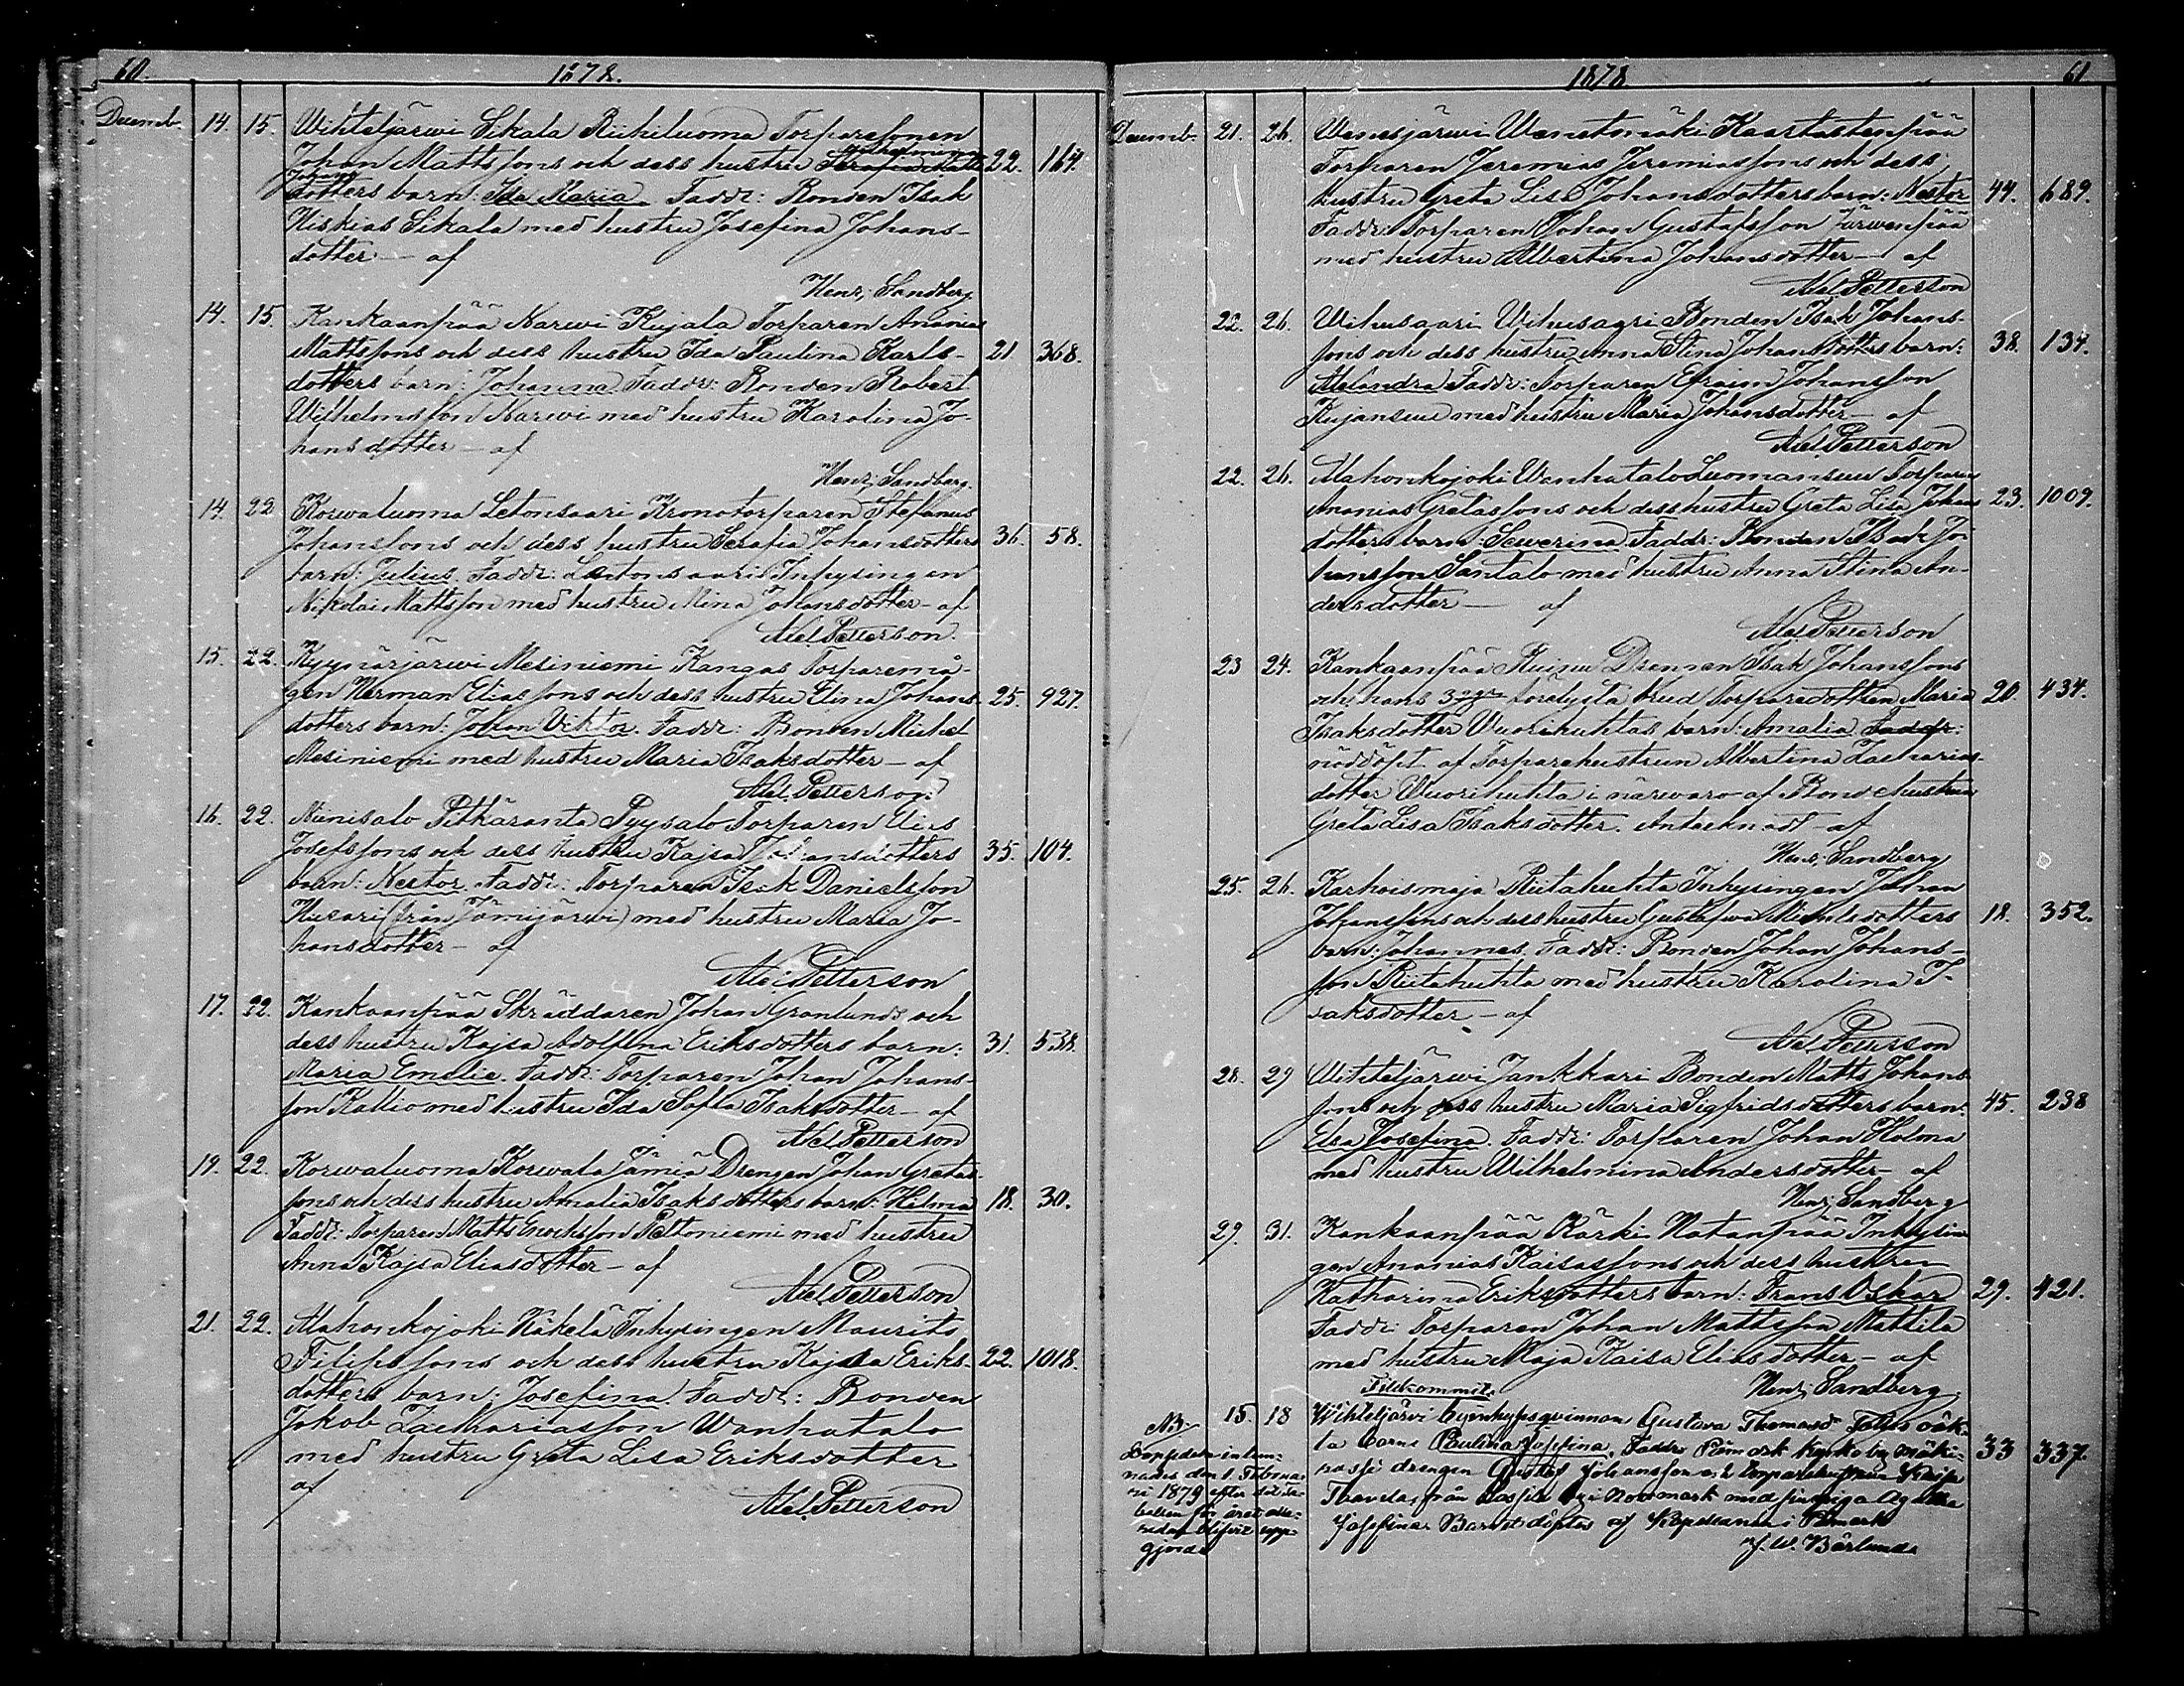 60. 1878.
Decemb. 14. 15. Wihteljärwi Sikala Riihiluoma Torparesonen
Wilhelmina
Johan Mattssons och dess hustru Serafia Matts- 22. 164.
Johans
dotters barn: Ida Maria Faddr: Bonden Isak
Hiskias Sikala med hustru Josefina Johans-
dotter — af
Henr; Sandberg
14. 15. Kankaanpää Narwi Kujala Torparen Ananias
Mattssons och dess hustru Ida Paulina Karls- 21. 368.
dotters barn: Johanna. Faddr: Bonden Robert
Wilhelmsson Narwi med hustru Karolina Jo-
hansdotter — af
Henr; Sandberg.
14. 22 Korwaluoma Letonsaari Kronotorparen Stefanus
Johanssons och dess hustru Serafia Johansdotters 36. 58.
barn: Julius. Faddr: Letonsaari Inhysingen
Nikolai Mattsson med hustru Mina Johansdotter — af
Axel Petterson.
15. 22. Kyynärjärwi Mesiniemi Kangas Torparemå-
gen Herman Eliassons och dess hustru Elina Johans- 25. 927.
dotters barn: Johan Viktor. Faddr: Bonden Michel
Mesiniemi med hustru Maria Isaksdotter — af
Axel Petterson
16. 22. Niinisalo Pitkäranta Pyysalo Torparen Elias
Josefssons och dess hustru Kajsa Johansdotters 35. 104.
barn: Nestor. Faddr: Torparen Isak Danielsson
Kusari (från Jämijärwi) med hustru Maria Jo-
hansdotter — af
Axel Petterson
17. 22. Kankaanpää Skräddaren Johan Grönlunds och
dess hustru Kajsa Adolfina Eriksdotters barn: 31. 538.
Maria Emelie. Faddr: Torparen Johan Johans-
son Kallio med hustru Ida Sofia Isaksdotter — af
Axel Petterson
19. 22. Korwaluoma Korwala Jämiä Drengen Johan Gretas-
sons och dess hustru Amalia Isaksdotters barn: Hilma 18. 30.
Faddr: Torparen Matts Enochsson Peltoniemi med hustru
Anna Kajsa Eliasdotter — af
Axel Petterson
21. 22. Alahonkojoki Käkelä Inhysingen Maurits
Filipssons och dess hustru Kajsa Eriks- 22. 1018.
dotters barn: Josefina. Faddr: Bonden
Jakob Zachariasson Wanhatalo
med hustru Greta Lisa Eriksdotter
af
Axel Petterson
1878. 61
Decemb. 21. 26. Wenesjärwi Wenetmäki Kaartostenpää
Torparen Jeremias Jeremiassons och dess
hustru Greta Lisa Johansdotters barn: Nestor 44. 689.
Faddr: Torparen Johan Gustafsson Järwenpää
med hustru Albertina Johansdotter — af
Axel Petterson
22. 26. Wihusaari Wihusaari Bonden Isak Johans-
sons och dess hustru Anna Stina Johansdotters barn: 38. 134.
Alexandra Faddr: Torparen Efraim Johansson
Kujansuu med hustru Maria Johansdotter — af
Axel Petterson
22. 26. Alahonkojoki Wanhatalo Luomansuu Torparen
Ananias Gretassons och dess hustru Greta Lisa Johans 23. 1009.
dotters barn: Sewerina Faddr: Bonden Isak Jo-
hansson Santalo med hustru Anna Stina An-
dersdotter — af
Axel Petterson
23 24. Kankaanpää Drengen Isak Johanssons
och hans 3 ggr förelysta brud Torparedottren Maria 20. 434.
Isaksdotter Wuorihuhtas barn: Amalia Faddr:
nöddöpt af Torparehustrun Albertina Zacharias-
dotter Wuorihuhta i närwaro af Bondehustrun
Greta Lisa Isaksdotter. Antecknadt af
Henr; Sandberg
25. 26. Karhoismaja Riitahuhta Inhysingen Johan
Johanssons och dess hustru Gustafwa Michelsdotters 18. 352.
barn: Johannes. Faddr: Bonden Johan Johans-
son Riitahuhta med hustru Karolina I-
saksdotter — af
Axel Petterson
28. 29 Wihteljärwi Jankkari Bonden Matts Johans-
sons och dess hustru Maria Sigfridsdotters barn: 45. 238
Elsa Josefina. Faddr: Torparen Johan Holma
med hustru Wilhelmina Andersdotter — af
Henr; Sandberg
29. 31. Kankaanpää Kärki Natanpää Inhysin-
gen Ananias Kaisassons och dess hustru
Katharina Eriksdotters barn: Frans Oskar 29. 421.
Faddr: Torparen Johan Mattsson Mattila
med hustru Maja Kaisa Eliasdotter — af
Henr; Sandberg
Tillkommit.
15. 18 Wihteljärvi Gustava Thomasd oäk-
ta barn Paulina Josefina. Faddr: Påmark kyrkoby 33 337.
drengen Gustaf Johansson och
från i Norrmark med
Josefina. Barnet döptes af Kapellanen i Påmark
J. W. Bärlund.
NB.
inläm-
nades den 1 Februa-
ri 1879 efter det ta-
bellen för året alle-
redan blifvit upp-
gjord.